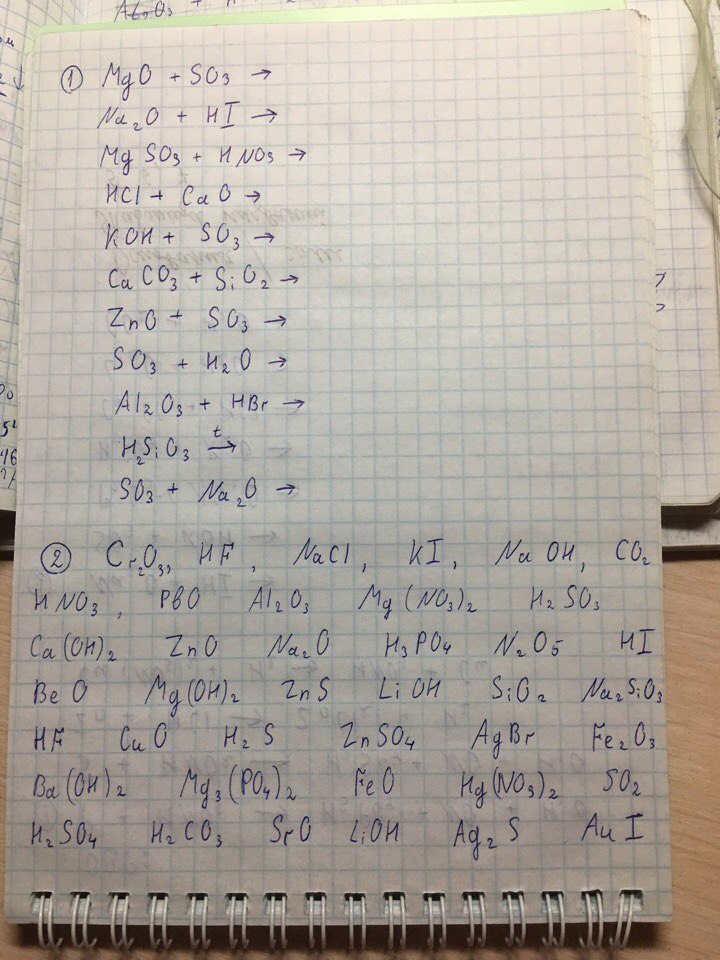 ① MgO + SO₃ →
Na₂O + HI →
MgSO₃ + HNO₃ →
HCl + CaO →
KOH + SO₃ →
CaCO₃ + SiO₂ →
ZnO + SO₃ →
SO₃ + H₂O →
Al₂O₃ + HBr →
H₂SiO₃ t→
SO₃ + Na₂O →
② Cr₂O₃, HF, NaCl, KI, NaOH, CO₂
HNO₃, PbO Al₂O₃ Mg(NO₃)₂ H₂SO₃
Ca(OH)₂ ZnO Na₂O H₃PO₄ N₂O₅ HI
BeO Mg(OH)₂ ZnS LiOH SiO₂ Na₂SiO₃
HF CuO H₂S ZnSO₄ AgBr Fe₂O₃
Ba(OH)₂ Mg₃(PO₄)₂ FeO Hg(NO₃)₂ SO₂
H₂SO₄ H₂CO₃ SrO LiOH Ag₂S AuI